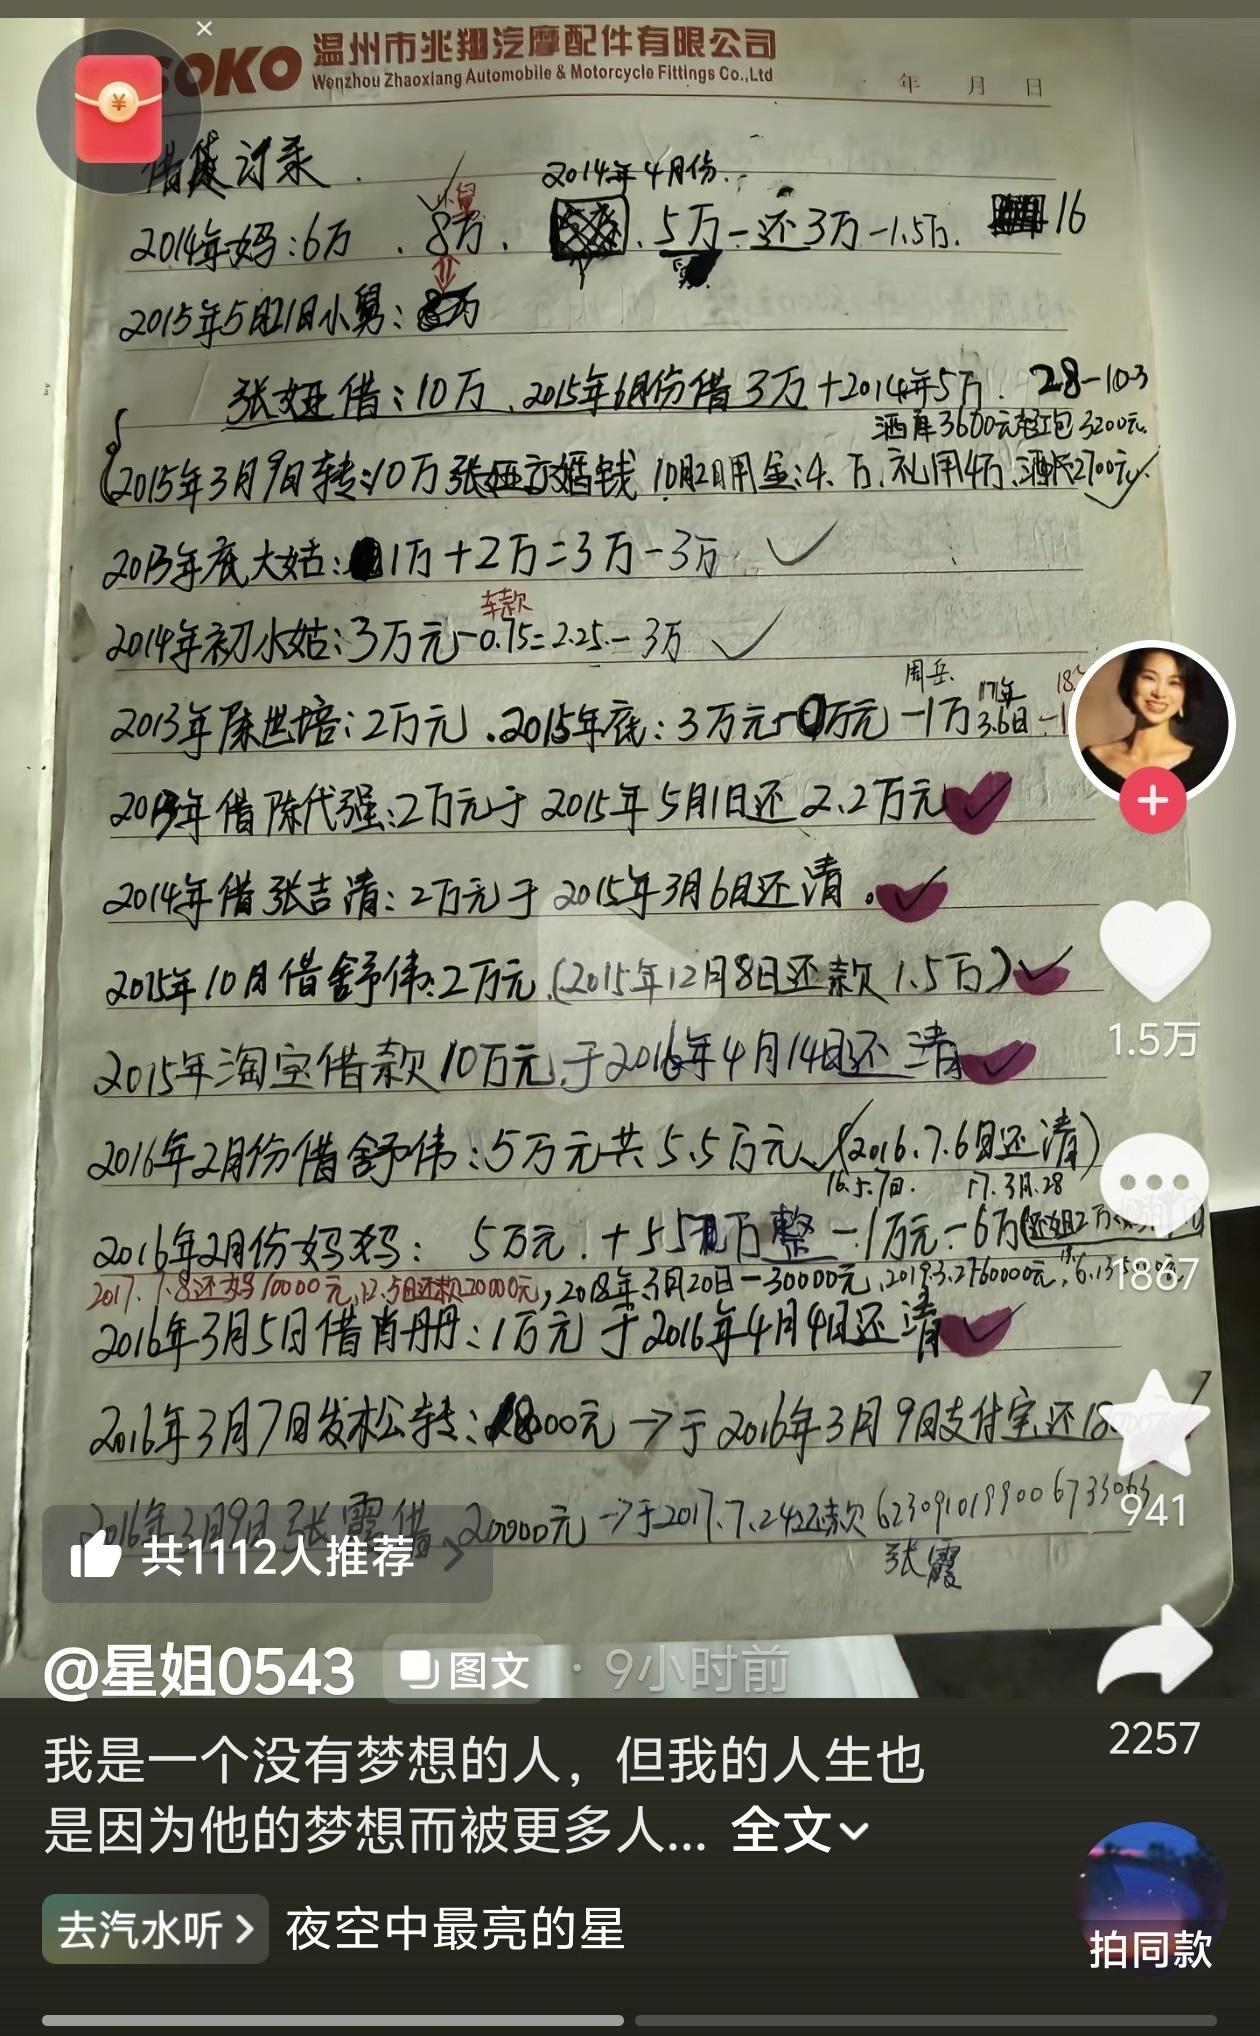 SOKO 温州市兆翔汽摩配件有限公司
Wenzhou Zhaoxiang Automobile & Motorcycle Fittings Co.,Ltd
年 月 日
借贷记录.
2014年4月份.
2014年妈:6万 . 8万. 5万-还3万-1.5万. 16
小舅
2015年5月21日小舅:
张娅借:10万、2015年6月份借3万+2014年5万. 28-10-3
酒席3600元 红包3200元
2015年3月9日转:10万张娅 婚钱 10月2日用金:4.万.礼用4万.酒 2700元
2013年底大姑: 1万+2万=3万-3万
车款
2014年初小姑:3万元-0.75=2.25-3万
周岳.
2013年陈世培:2万元.2015年底:3万元 万元-1万
17年3.6日
2013年借陈代强:2万元于2015年5月1日还2.2万元
2014年借张吉清:2万元于2015年3月6日还清.
2015年10月借舒伟:2万元.(2015年12月8日还款1.5万)
2015年淘宝借款10万元于2016年4月14日还清
2016年2月份借舒伟:5万元共5.5万元、(2016.7.6日还清)
16.5.7日. 17.3月.28
2016年2月份妈妈: 5万元.+5 万整-1万元-6万
2017.7.8还妈10000元,12.5日还款20000元,2018年3月20日-30000元,2019.3.2
2016年3月5日借肖丹丹:1万元于2016年4月4日还清
2016年3月7日发松转: 000元→于2016年3月9日支付宝还
2016年3月9日张霞借 20000元→于2017.7.24还款
张霞
¥
1.5万
1867
941
2257
共1112人推荐 >
@星姐0543 图文 · 9小时前
我是一个没有梦想的人，但我的人生也
是因为他的梦想而被更多人... 全文
去汽水听 > 夜空中最亮的星
拍同款